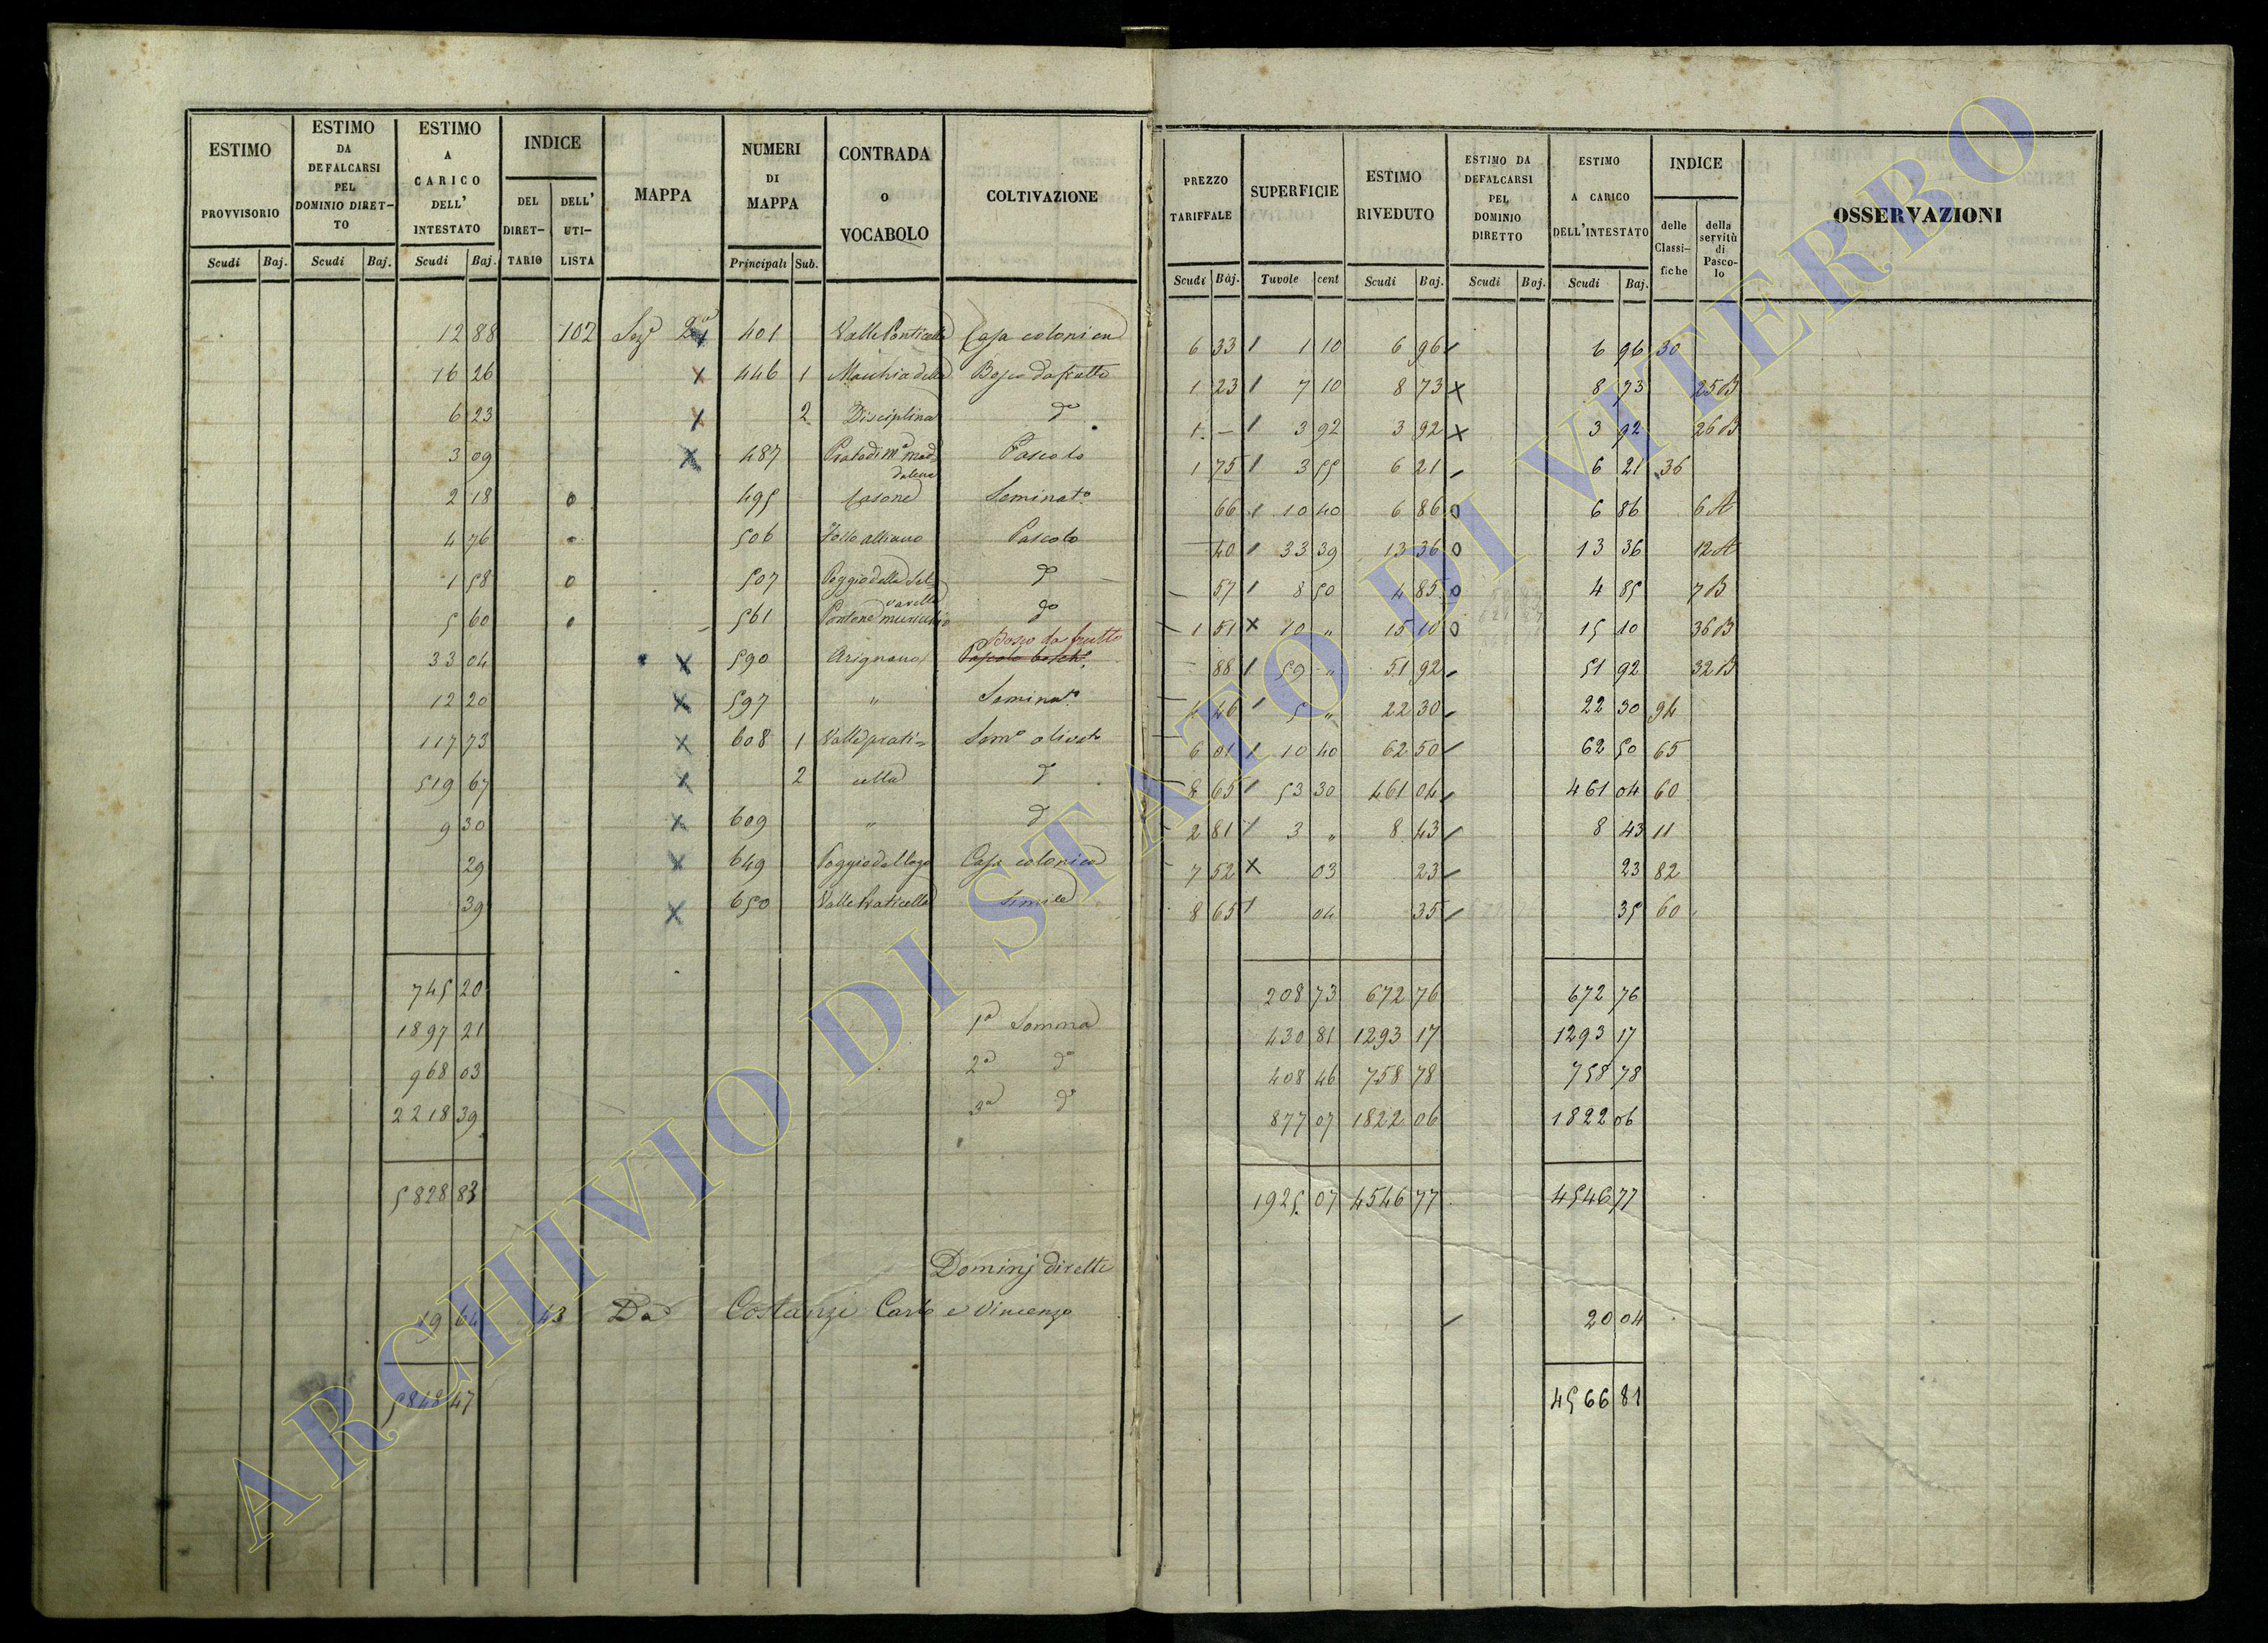 ESTIMO PROVVISORIO | ESTIMO DA DEFALCARSI PEL DOMINIO DIRETTO | ESTIMO A CARICO DELL' INTESTATO | INDICE | MAPPA | NUMERI DI MAPPA | CONTRADA o VOCABOLO | COLTIVAZIONE
DEL DIRET-TARIO | DELL' UTI-LISTA
Scudi | Baj. | Scudi | Baj. | Scudi | Baj. | Principali | Sub.
12 88 102 Sezᵉ 2ᵃ 401 Casa colonica
16 26 446 1 Macchia della Bosco da frutto
6 23 2 Disciplina dᵒ
3 09 487 Prato di Mᵃ Mad-dalena Pascolo
2 18 0 495 Casone Seminatᵒ
4 76 506 Pascolo
1 58 0 507 Poggio della Sel-varella dᵒ
5 60 561 Pontone dᵒ
Bosco da frutto
33 04 590 Arignano Pascolo boschᵒ
12 20 597 " Seminatᵒ
117 73 608 1 Valle prati= Semᵒ olivatᵒ
519 67 2 cella dᵒ
9 30 609 " dᵒ
29 649 Casa colonica
39 650 Valle Praticella Simile
745 20
1897 21 1ᵃ Somma
968 03 2ᵃ dᵃ
2218 39 3ᵃ dᵃ
5828 83
Dominj diretti
19 64 43 Da Costanzi Carlo e Vincenzo
5848 47
PREZZO TARIFFALE | SUPERFICIE | ESTIMO RIVEDUTO | ESTIMO DA DEFALCARSI PEL DOMINIO DIRETTO | ESTIMO A CARICO DELL'INTESTATO | INDICE | OSSERVAZIONI
delle Classi-fiche | della servitù di Pasco-lo
Scudi | Baj. | Tavole | cent | Scudi | Baj. | Scudi | Baj. | Scudi | Baj.
6 33 1 10 6 96 6 96 30
1 23 7 10 8 73 8 73 25 B
1 - 3 92 3 92 3 92 26 B
1 75 3 55 6 21 6 21 36
66 10 40 6 86 0 6 86 6 A
40 33 39 13 36 0 13 36 12 A
57 8 50 4 85 0 4 85 7 B
1 51 10 " 15 10 0 15 10 36 B
88 59 " 51 92 51 92 32 B
4 46 5 " 22 30 22 30 94
6 01 10 40 62 50 62 50 65
8 65 53 30 461 04 461 04 60
2 81 3 " 8 43 8 43 11
7 52 03 23 23 82
8 65 04 35 35 60
208 73 672 76 672 76
430 81 1293 17 1293 17
408 46 758 78 758 78
877 07 1822 06 1822 06
1925 07 4546 77 4546 77
20 04
4566 81
ARCHIVIO DI STATO DI VITERBO